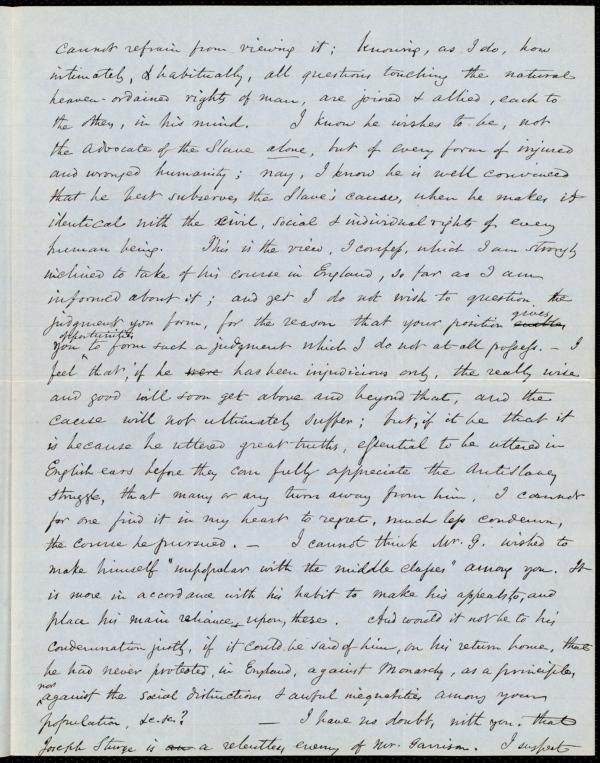 cannot refrain from viewing it; knowing, as I do, how
intimately, & habitually, all questions touching the natural
heaven-ordained rights of man, are joined & allied, each to
the other, in his mind. I know he wishes to be, not
the advocate of the Slave alone, but of every form of injured
and wronged humanity; nay, I know he is well convinced
that he best subserves the Slave's cause, when he makes it
identical with the civil, social & individual rights of every
human being. This is the view, I confess, which I am strongly
inclined to take of his course in England, so far as I am
informed about it; and yet I do not wish to question the
judgment you form, for the reason that your position gives
you opportunities to form such a judgment which I do not at all possess. — I
feel that, if he were has been injudicious only, the really wise
and good will soon get above and beyond that, and the
cause will not ultimately suffer; but, if it be that it
is because he uttered great truths, essential to be uttered in
English ears before they can fully appreciate the Antislavery
struggle, that many or any turn away from him, I cannot
for one find it in my heart to regret, much less condemn,
the course he pursued. — I cannot think Mr. G. wished to
make himself "unpopular with the middle classes" among you. It
is more in accordance with his habit to make his appeals to, and
place his main reliance upon, these. And would it not be to his
condemnation justly, if it could be said of him, on his return home, that
he had never protested, in England, against Monarchy, as a principle,
nor against the social distinctions & awful inequalities among your
population, &c. &c? — I have no doubt, with you, that
Joseph Sturge is a relentless enemy of Mr. Garrison. I suspect